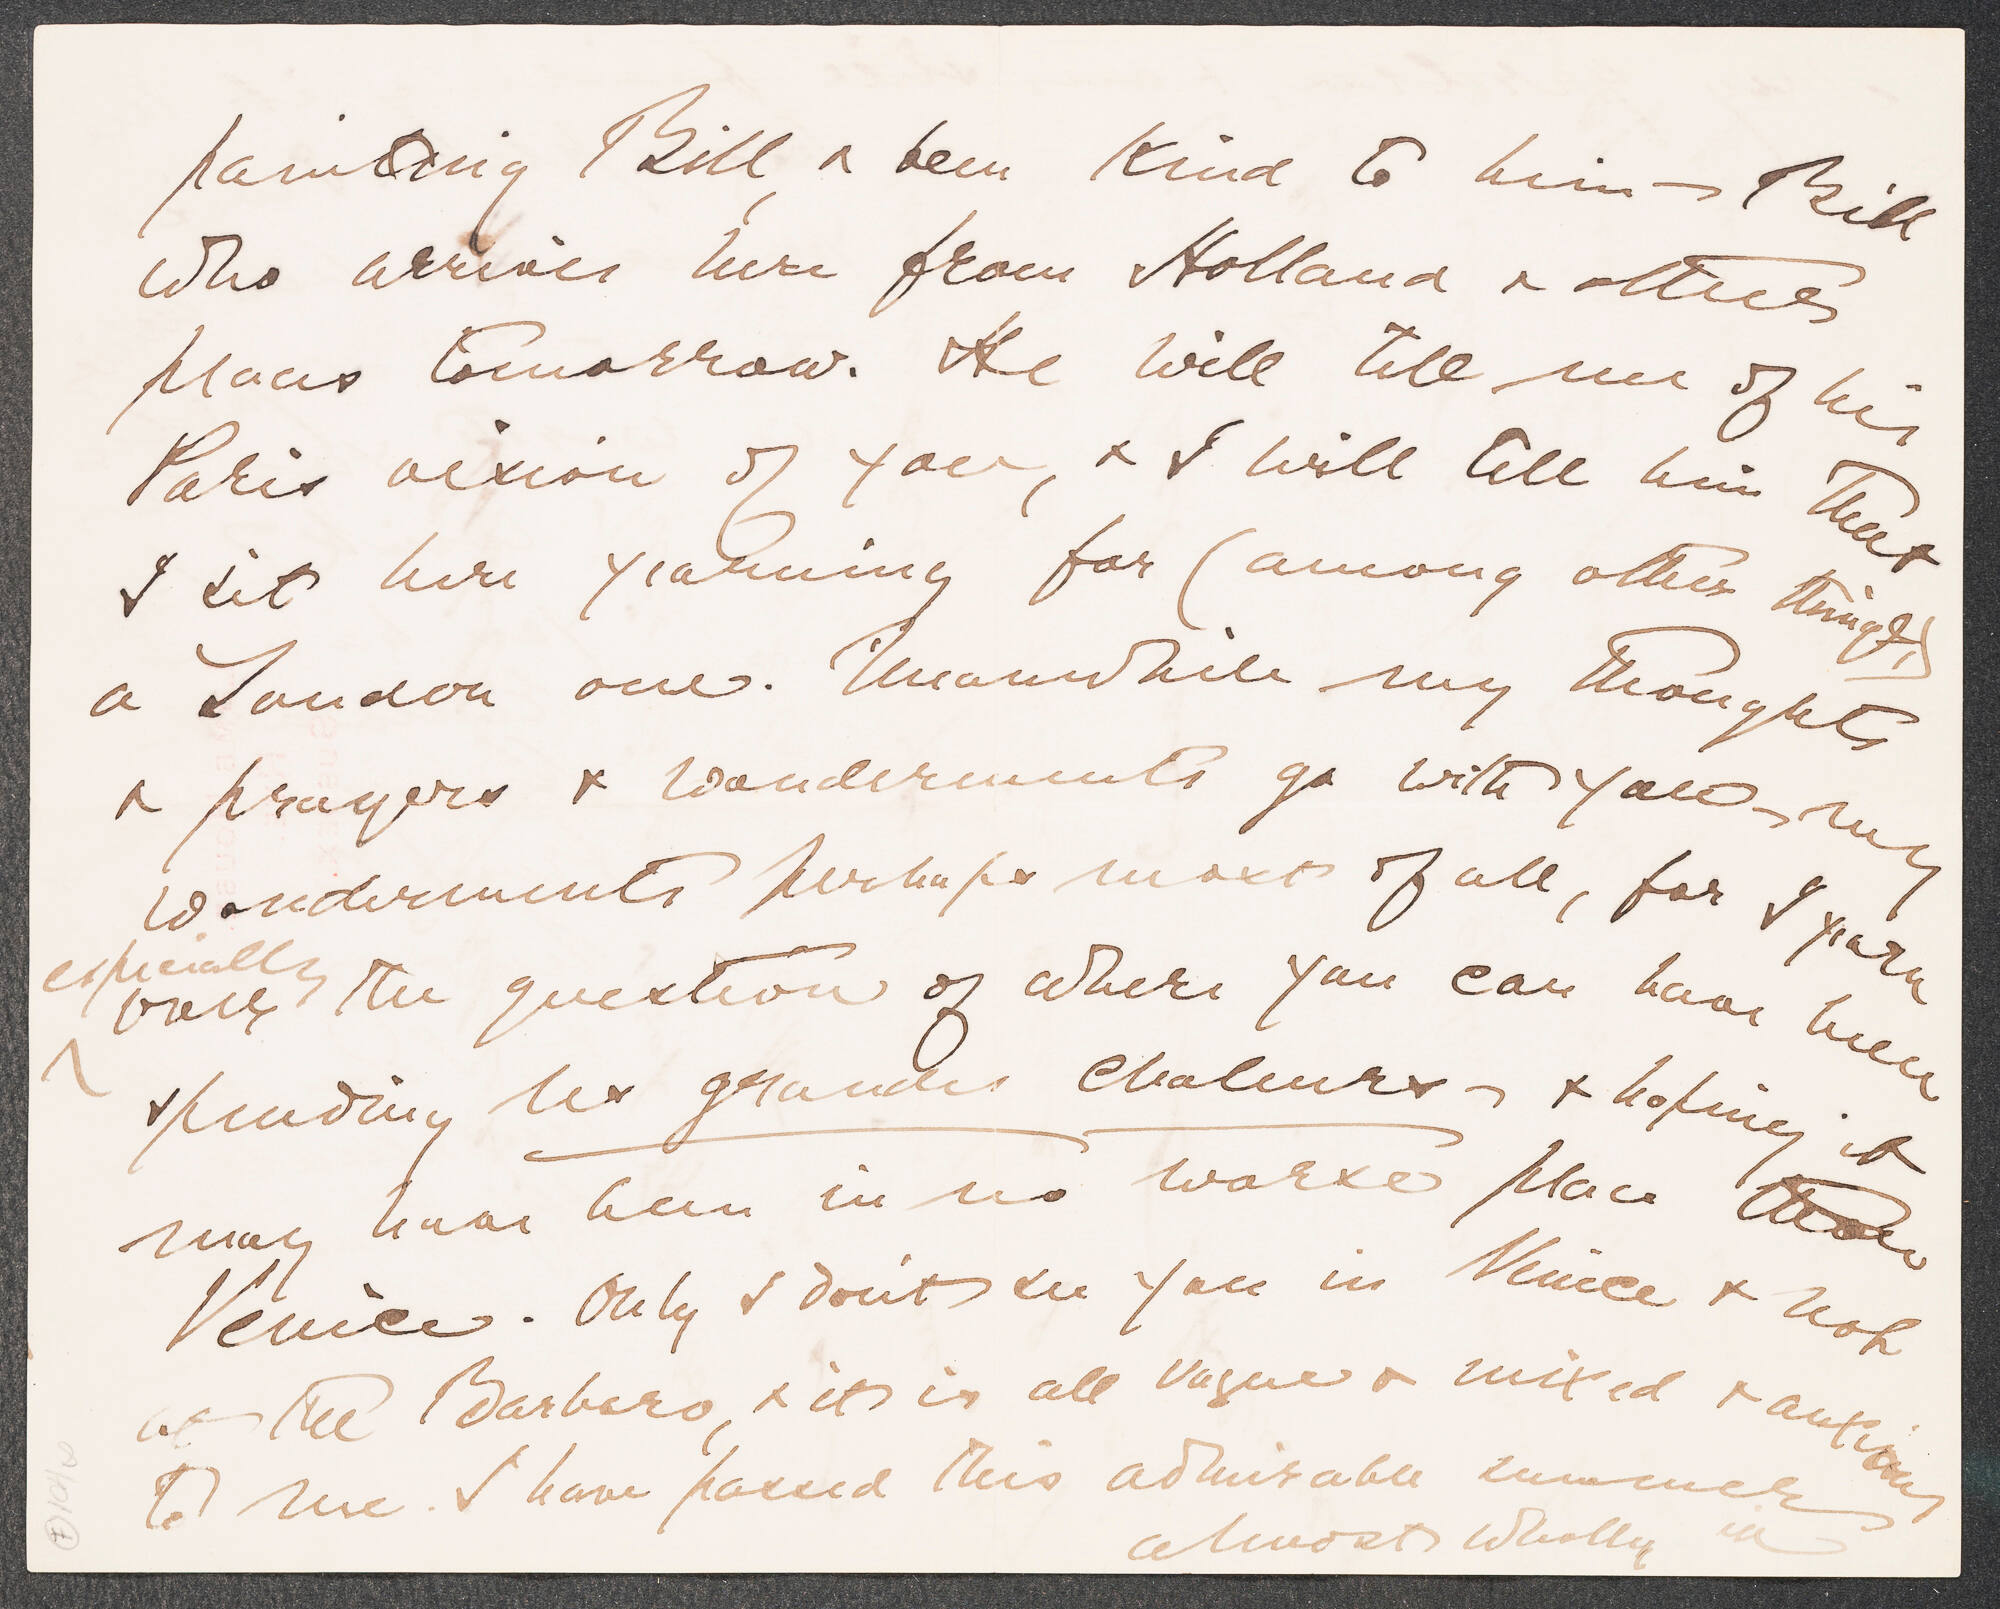 painting Bill, & been kind to him – Bill
who arrives here from Holland & other
places tomorrow. He will tell me of his
Paris vision of you, & I will tell him that
I sit here yearning for (among other things,)
a London one. Meanwhile my thoughts
& prayers & wonderments go with you – my
wonderments perhaps most of all, for I yearn
especially
over the question of where you can have been
spending les grandes chaleurs – & hoping it
may have been in no worse place than
Venice. Only I don't see you in Venice & not
at the Barbaro, & it is all vague & mixed & anxious
to me. I have passed this admirable summer
almost wholly in